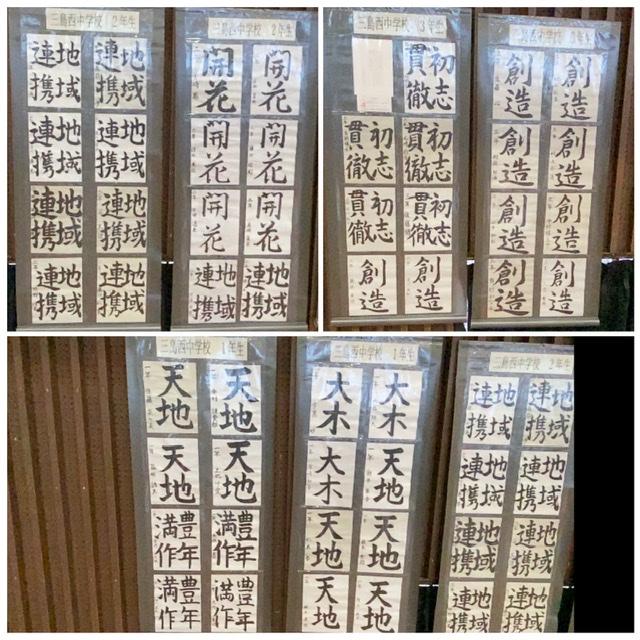 三島西中学校 2年生
地域
連携
地域
連携
地域
連携
地域
連携
地域
連携
地域
連携
地域
連携
地域
連携
三島西中学校 2年生
開花
開花
開花
開花
開花
開花
地域
連携
地域
連携
三島西中学校 3年生
初志
貫徹
初志
貫徹
初志
貫徹
初志
貫徹
初志
貫徹
創造
創造
三島西中学校
創造
創造
創造
創造
創造
創造
創造
創造
三島西中学校 1年生
天地
天地
天地
天地
豊年
満作
豊年
満作
豊年
満作
豊年
満作
三島西中学校 1年生
大木
大木
天地
大木
天地
天地
天地
天地
三島西中学校 2年生
地域
連携
地域
連携
地域
連携
地域
連携
地域
連携
地域
連携
地域
連携
地域
連携